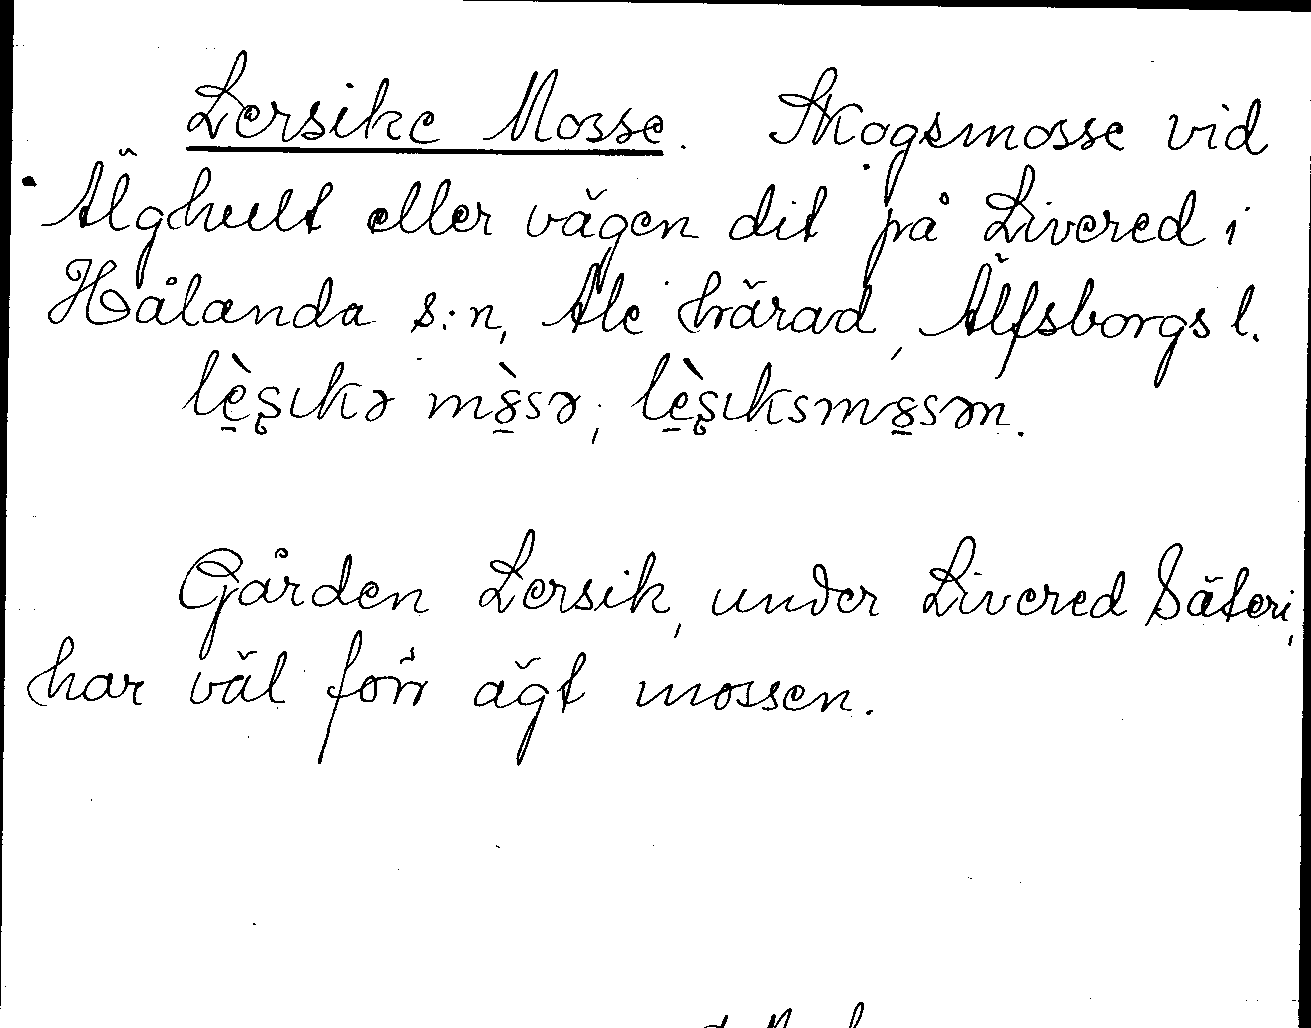 Lersike Mosse. Skogsmosse vid
Älghult eller vägen dit på Livered i
Hålanda s:n, Ale härad, Älfsborgs l.
lè̱ʂıkə mȣ̱̀sə; lè̱ʂıksmȣ̱sən.
Gården Lersik, under Livered Säteri,
har väl förr ägt mossen.